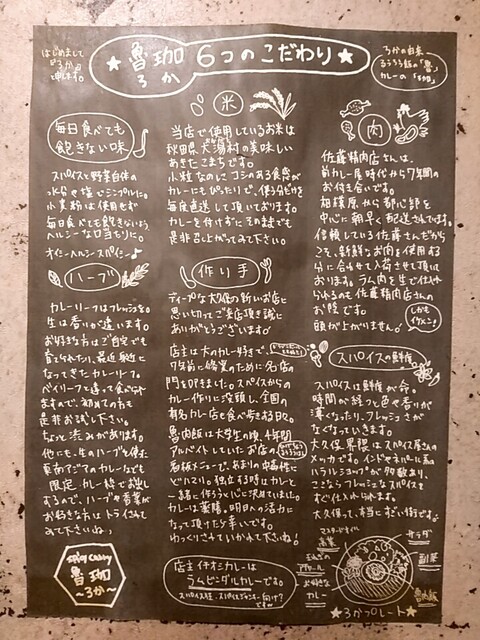 はじめまして
『ろか』と
申します。
★ 魯珈 6つのこだわり ★
ろか
ろかの由来
るうろう飯の「魯」
カレーの「珈」
毎日食べても
飽きない味
スパイスと野菜自体の
小麦粉は使用せず
毎日食べても飽きないよう
オイシーヘルシースパイシー♪
ハーブ
カレーリーフはフレッシュな
生は香りが違います。
お好きな方はご自宅でも
育てられたり、最近身近に
なってきたカレーリーフ。
ベイリーフと違って食べられ
ますので、初めての方も
是非お試し下さい。
ちょっと渋みがあります。
他にも、生のハーブを使った
東南アジアのカレーなども
限定カレー枠でお出し
するので、ハーブや香菜が
お好きな方はトライされて
みて下さいね。
SPICY CURRY
魯珈
～ろか～
米
当店で使用しているお米は
秋田県大潟村の美味しい
あきたこまちです。
小粒なのにコシのある食感が
カレーにもぴったりで、使う分だけを
毎度直送して頂いております。
カレーを付けずにそのままでも
是非召し上がってみて下さい。
作り手
ディープな大久保の新しいお店に
思い切ってご来店頂き誠に
ありがとうございます。
店主は大のカレー好きで、
7年前に修業のために名店の
門を叩きました。スパイスからの
カレー作りに没頭し、全国の
有名カレー店を食べ歩きする日々。
魯肉飯は大学生の頃、4年間
アルバイトしていたお店の
看板メニューで、あまりの中毒性に
ドハマり。独立する時はカレーと
一緒に作ろうと心に決めていました。
カレーは薬膳。明日への活力に
なって頂けたら幸いです。
ゆっくりされていかれて下さいね！
店主イチオシカレーは
ラムビンダルカレーです。
肉
佐藤精肉店さんは、
前カレー屋時代から7年間の
お付き合いです。
相模原から都心部を
中心に朝早く配送されています。
信頼している佐藤さんだから
こそ、新鮮なお肉を使用する
分に合わせて入荷させて頂いて
おります。ラム肉を生で仕入れ
られるのも佐藤精肉店さんの
お陰です。
頭が上がりません。
しかも
イケメン！
スパイスの鮮度
スパイスは鮮度が命。
時間が経つと色や香りが
薄くなったり、フレッシュさが
なくなっていきます。
大久保界隈はスパイス屋さんの
メッカです。インドやネパール系の
ハラルショップが多数あり、
ことならフレッシュなスパイスを
すぐ仕入れられます。
大久保って、本当にすごい街です。
マスタードオイル
サラダ
副菜
アチャール
お好きな
カレー
魯肉飯
★ろかプレート★